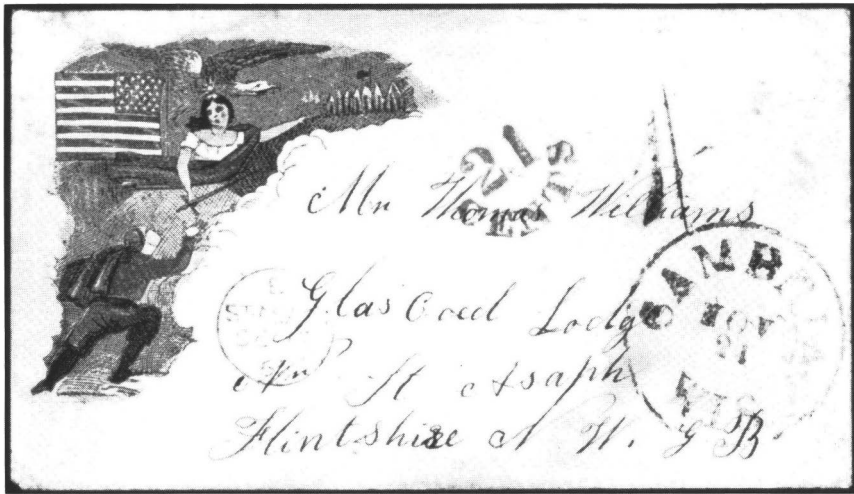 21
CENTS
Mr Thomas Williams
Glas Coed Lodge
Nr St Asaph
Flintshire N W. G B.
CAMBRIA
WIS